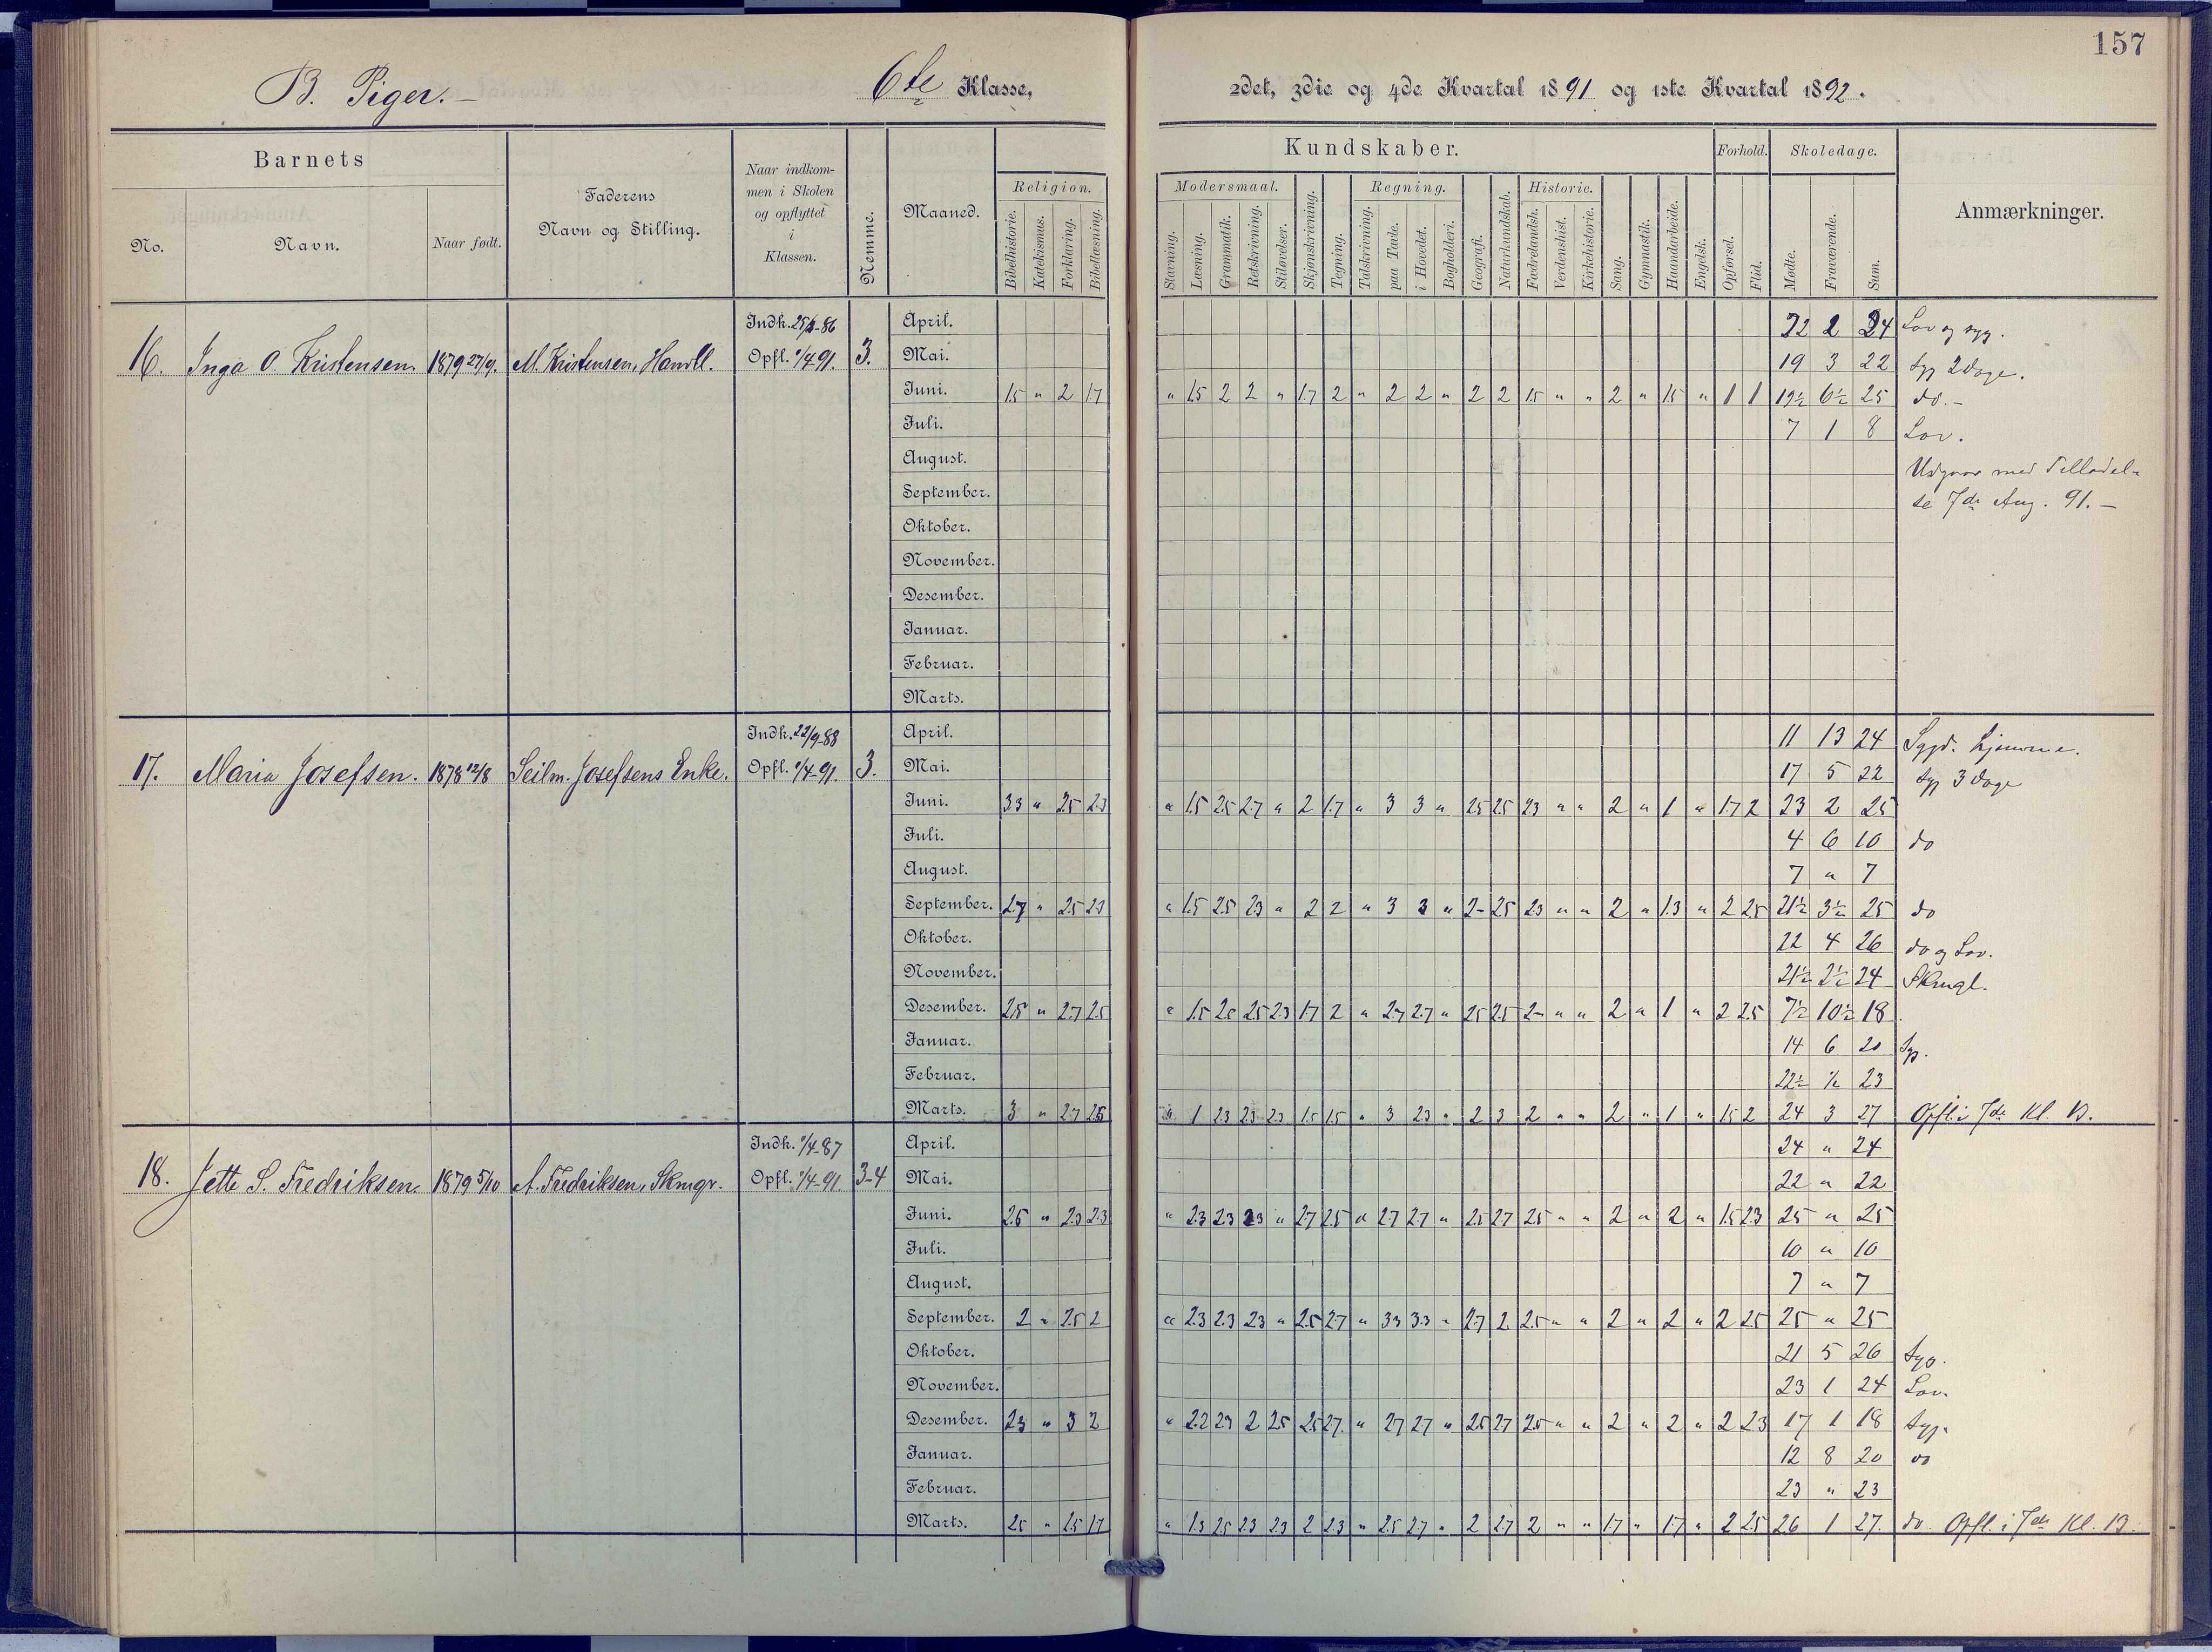 157
B. Piger. — 6te Klasse, 2det, 3die og 4de Kvartal 1891 og 1ste Kvartal 1892.
Barnets
No. Navn. Naar født.
Faderens
Navn og Stilling.
Naar indkom-
men i Skolen
og opflyttet
i
Klassen.
Nemme.
Maaned.
Kundskaber.
Religion.
Bibelhistorie. Katekismus. Forklaring. Bibellæsning.
Modersmaal.
Stavning. Læsning. Grammatik. Retskrivning. Stiløvelser.
Skjønskrivning. Tegning.
Regning.
Talskrivning. paa Tavle. i Hovedet. Bogholderi.
Geografi. Naturkundskab.
Historie.
Fædrelandsh. Verdenshist. Kirkehistorie.
Sang. Gymnastik. Haandarbeide. Engelsk.
Forhold.
Opførsel. Flid.
Skoledage.
Mødte. Fraværende. Sum.
Anmærkninger.
16. Inga O. Kristensen. 1879 27/9. M. Kristensen, Handl. Opfl. 1/4-91. 3.
April. 22 2 24 Lov og syg.
Mai. 19 3 22 Syg 2 dage.
Juni. 1.5 " 2 1.7 " 1.5 2 2 " 1.7 2 " 2 2 " 2 2 1.5 " " 2 " 1.5 " 1 1 19½ 6½ 25 do. -
Juli. 7 1 8 Lov.
August. Udgaar med Tilladel-
September. se 7de Aug. 91. —
Oktober.
November.
Desember.
Januar.
Februar.
Marts.
17. Maria Josefsen. 1878 12/8 Seilm. Josefsens Enke. Indk. 22/9-88 Opfl. 1/4-91. 3.
April. 11 13 24 Sygd. hjemme.
Mai. 17 5 22 Syg 3 dage
Juni. 3.3 " 2.5 2.3 " 1.5 2.5 2.7 " 2 1.7 " 3 3 " 2.5 2.5 2.3 " " 2 " 1 " 1.7 2 23 2 25
Juli. 4 6 10 do
August. 7 " 7
September. 2.7 " 2.5 2.3 " 1.5 2.5 2.3 " 2 2 " 3 3 " 2- 2.5 2.3 " " 2 " 1.3 " 2 2.5 21½ 3½ 25 do
Oktober. 22 4 26 do og Lov.
November. 21½ 2½ 24 Skmgl.
Desember. 2.5 " 2.7 2.5 " 1.5 2.5 2.5 2.3 1.7 2 " 2.7 2.7 " 2.5 2.5 2- " " 2 " 1 " 2 2.5 7½ 10½ 18
Januar. 14 6 20 Syg.
Februar. 22½ ½ 23
Marts. 3 " 2.7 2.5 " 1 2.3 2.3 2.3 1.5 1.5 " 3 2.3 " 2 3 2 " " 2 " 1 " 1.5 2 24 3 27 Opfl. i 7de Kl. B.
18. Jette S. Fredriksen. 1879 5/10 A. Fredriksen, Skmgr. Indk. 1/4-87 Opfl. 1/4-91 3-4
April. 24 " 24
Mai. 22 " 22
Juni. 2.5 " 2.3 2.3 " 2.3 2.3 2.3 " 2.7 2.5 " 2.7 2.7 " 2.5 2.7 2.5 " " 2 " 2 " 1.5 2.3 25 " 25
Juli. 10 " 10
August. 7 " 7
September. 2 " 2.5 2 " 2.3 2.3 2.3 " 2.5 2.7 " 3.3 3.3 " 2.7 2 2.5 " " 2 " 2 " 2 2.5 25 " 25
Oktober. 21 5 26 Syg.
November. 23 1 24 Lov.
Desember. 2.3 " 3 2 " 2.2 2.3 2 2.5 2.5 2.7 " 2.7 2.7 " 2.5 2.7 2.5 " " 2 " 2 " 2 2.3 17 1 18 Syg.
Januar. 12 8 20 do
Februar. 23 " 23
Marts. 2.5 " 2.5 1.7 " 1.3 2.5 2.3 2.3 2 2.3 " 2.5 2.7 " 2 2.7 2 " " 1.7 " 1.7 " 2 2.5 26 1 27. do Opfl. i 7de Kl. B.